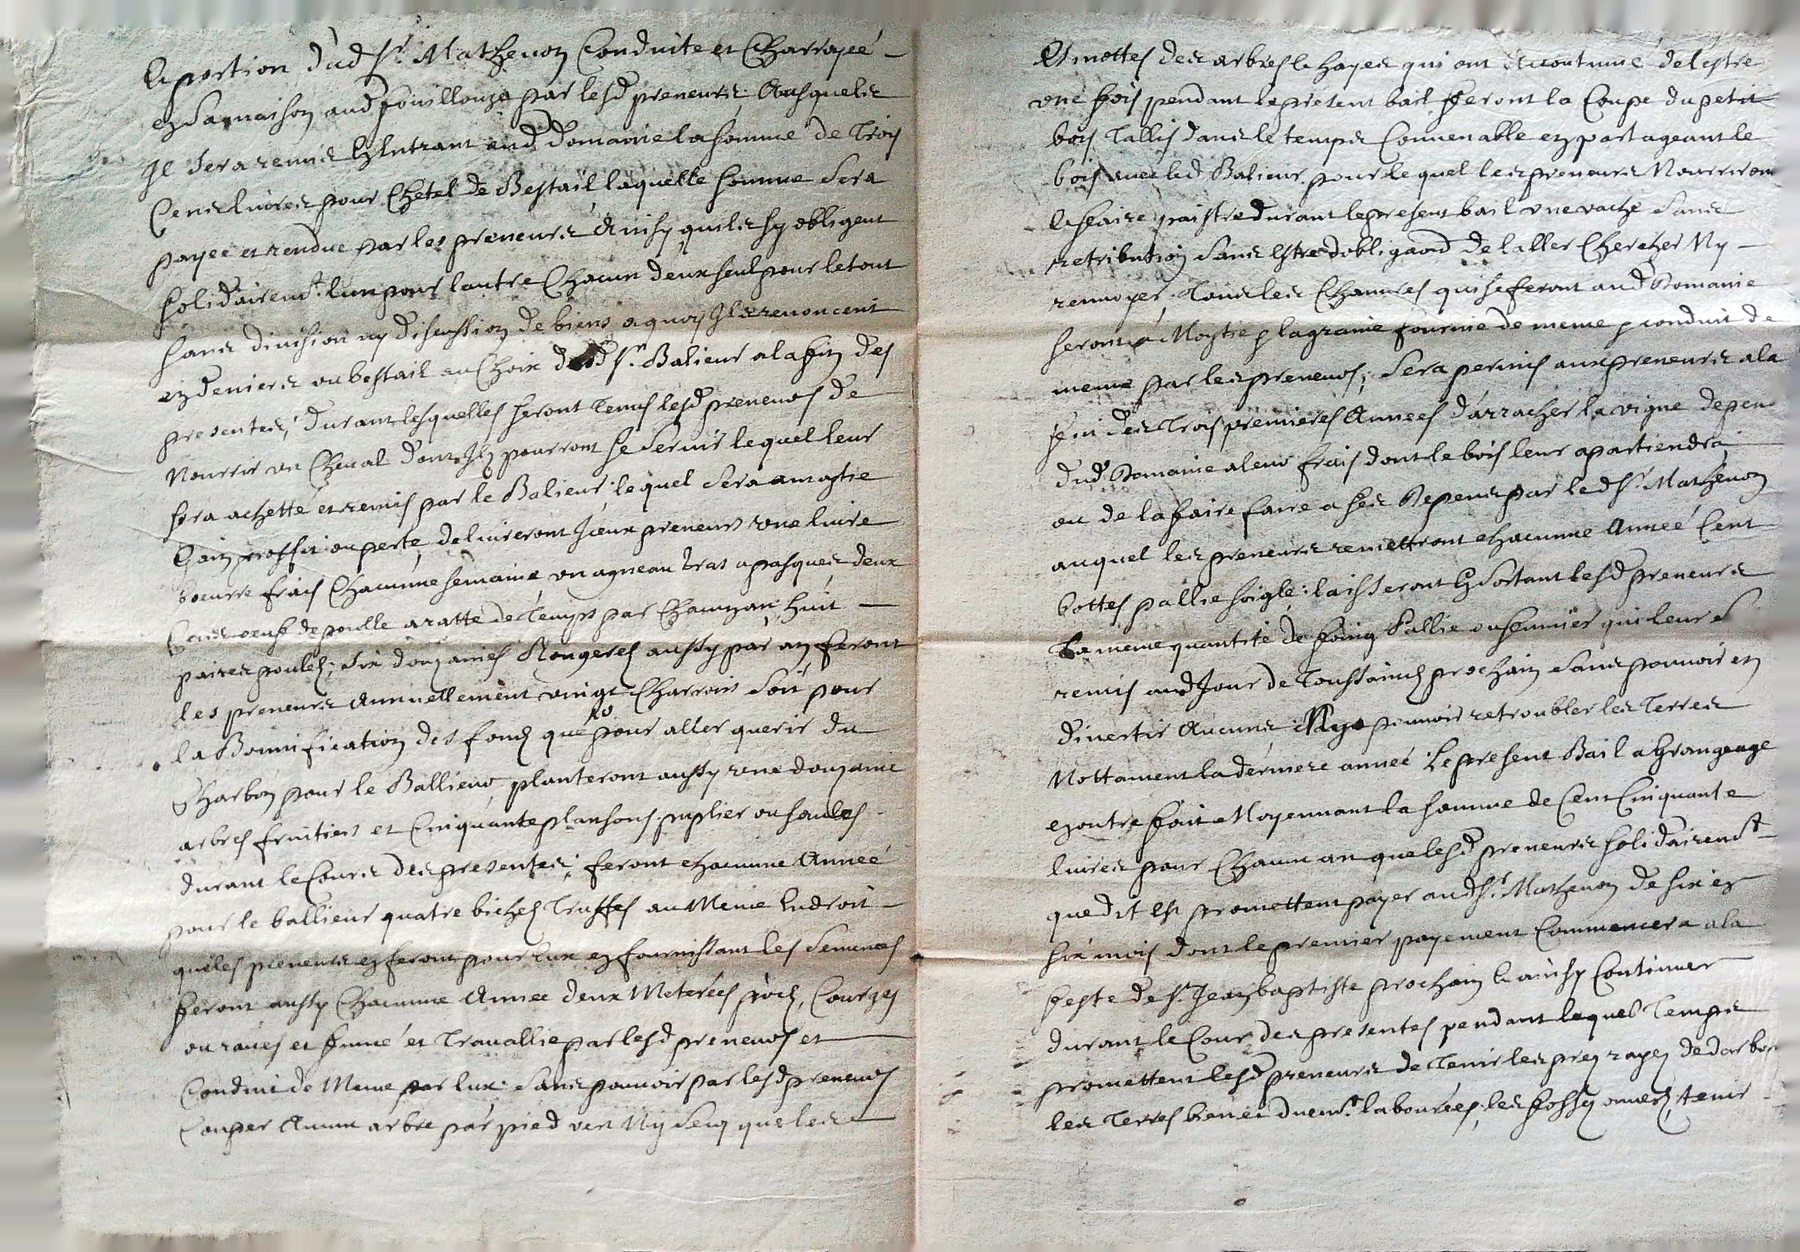 la portion dud Sr. Mathevon Conduite et Charroyeé
en sa maison aud fouillouze par lesd preneurs Ausquels
Il sera remis En Entrant aud Domaine la somme de Trois
Cens livres pour Chetel de Bestail laquelle somme sera
payeé et rendue par les preneurs Ainsy quils sy obligent
solidairemt. lun pour lautre Chacun deux seul pour le tout
sans division ny discussion de biens a quoy Ils renoncent
en deniers ou bestail au Choix dud Sr. Balieur a la fin des
presentes, durant lesquelles seront Tenus lesd preneurs de
Nourrir un Cheval dont Ils pourront se servir lequel leur
sera achetté et remis par le Balieur lequel sera a moytie
Gain proffit ou perte, delivreront Iceux preneurs une livre
beurre frais Chacunne semaine un agneau gras a pasques deux
Cens oeufs de poulle a ratte de Temps par Chacun an huit
paires poulets, six douzaines Rougerets aussy par an feront
les preneurs Annuellement vingt Charrois soit pour
la Bonnification des fonds que pour aller querir du
Charbon pour le Ballieur planteront aussy une douzaine
arbres fruitiers et Cinquante plansons puplier ou saules
durant le Cours des presentes, feront chacunne Anneé
pour le ballieur quatre bichets Truffes au Meme Endroit
que les preneurs en feront pour Eux en fournissant les semences
feront aussy Chacunne Anneé deux Meterées pois, Courges
ou raves et fumé et Travallié par lesd preneurs et
Conduit de Meme par Eux sans pouvoir par lesd preneurs
Couper Aucun arbre par pied vert Ny secq que les
Et mottes des arbres & hayes qui ont accoutumé de lestre
une fois pendant le present bail feront la Coupe du petit
bois Tallis dans le temps Convenable en partageant le
bois avec led Balieur pour lequel les preneurs Nourriront
& faire paistre durant le present bail une vache sans
retribution sans Estre dobligaon de laller Chercher Ny
renvoyer, Tous les Chanvres qui se feront aud Domaine
seront a Moytie & la graine fournie de meme & conduit de
meme par les preneurs, sera permis aux preneurs a la
fin des Trois premieres Annees d'arracher la vigne depen
dud Domaine a leurs frais dont le bois leur apartiendra
ou de la faire faire a ses Depens par led Sr. Mathevon
auquel les preneurs remettront chacunne Anneé Cent
bottes pallie soigle, laisseront En Sortant lesd preneurs
La meme quantité de foing Pallie ou fumier qui leur
remis aud Jour de Toussaincts prochain sans pouvoir en
divertir Aucuns Ny pouvoir retroubler les Terres
Nottament la derniere anneé Le present Bail a Grangeage
en outre fait Moyennant la somme de Cent Cinquante
livres pour Chacun an que lesd preneurs solidairemt
que dit est promettent payer aud Sr. Mathevon de six en
six mois dont le premier payement Commencera a la
feste de St Jean baptiste prochain & ainsy Continuer
durant le Cour des presentes pendant lequel Temps
promettent lesd preneurs de Tenir les prez rayez de darbon
les Terres bien et duemt. labourées, les fossez ouverts, tenir